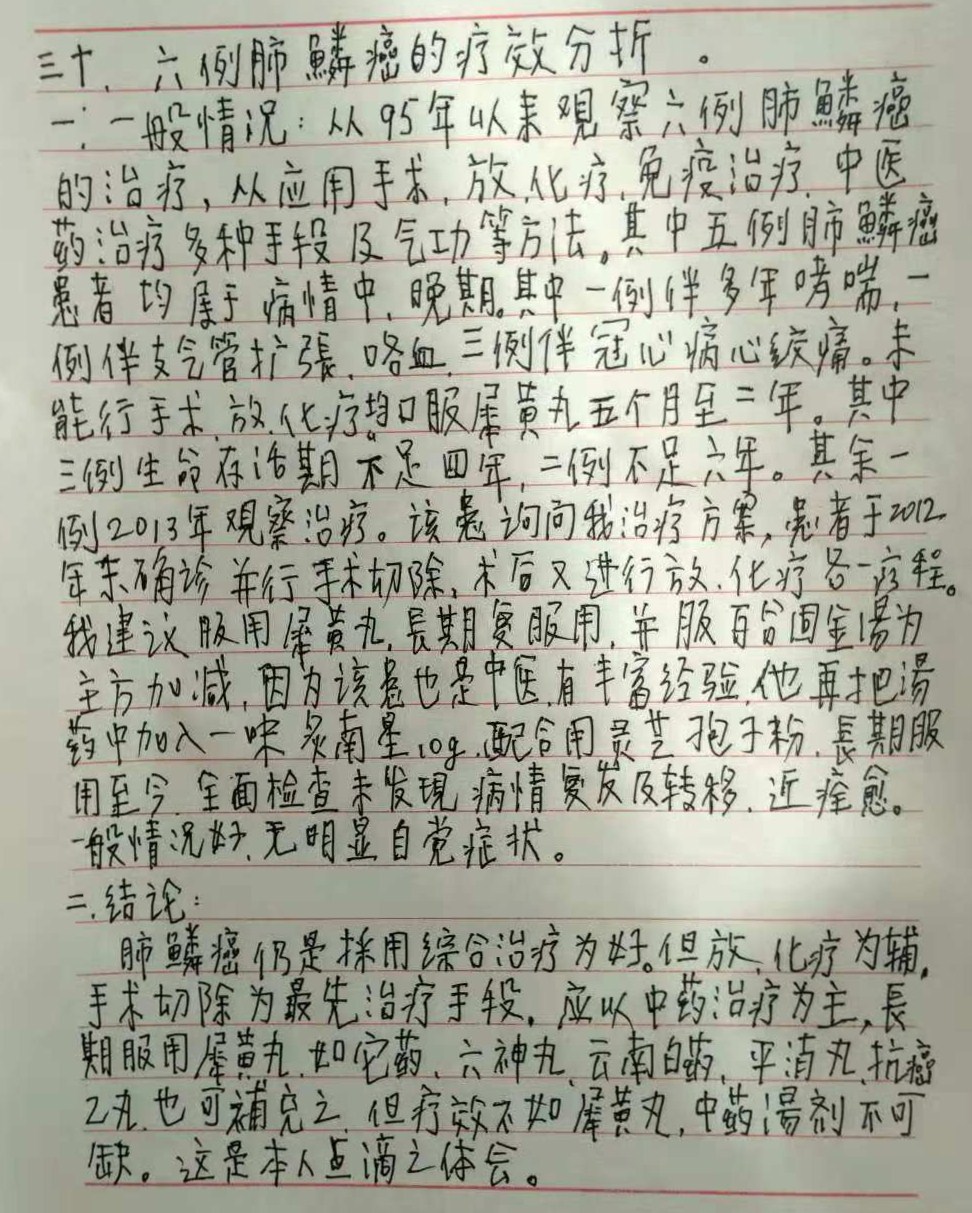 三十、六例肺鱗癌的疗效分折。
一：一般情况：从95年以来观察六例肺鱗癌
的治疗，从应用手术、放、化疗、免疫治疗、中医
药治疗多种手段及气功等方法。其中五例肺鱗癌
患者均属于病情中、晚期。其中一例伴多年哮喘，一
例伴支气管扩張、咯血、三例伴冠心病心绞痛。未
能行手术、放、化疗。均口服犀黄丸五个月至二年。其中
三例生命存活期不足四年，二例不足六年。其余一
例2013年观察治疗。该患询问我治疗方案，患者于2012
年末确诊并行手术切除，术后又进行放、化疗各一疗程。
我建议服用犀黄丸，長期复服用，并服百合固金湯为
主方加减，因为该患也是中医，有丰富经验，他再把湯
药中加入一味炙南星10g，配合用灵芝孢子粉，長期服
用至今，全面检查未发現病情复发及转移，近痊愈。
一般情况好，无明显自觉症状。
二、结论：
肺鱗癌仍是採用综合治疗为好。但放、化疗为辅，
手术切除为最先治疗手段，应以中药治疗为主，長
期服用犀黄丸，如它药，六神丸、云南白药，平消丸、抗癌
乙丸，也可補充之，但疗效不如犀黄丸，中药湯剂不可
缺。这是本人点滴之体会。